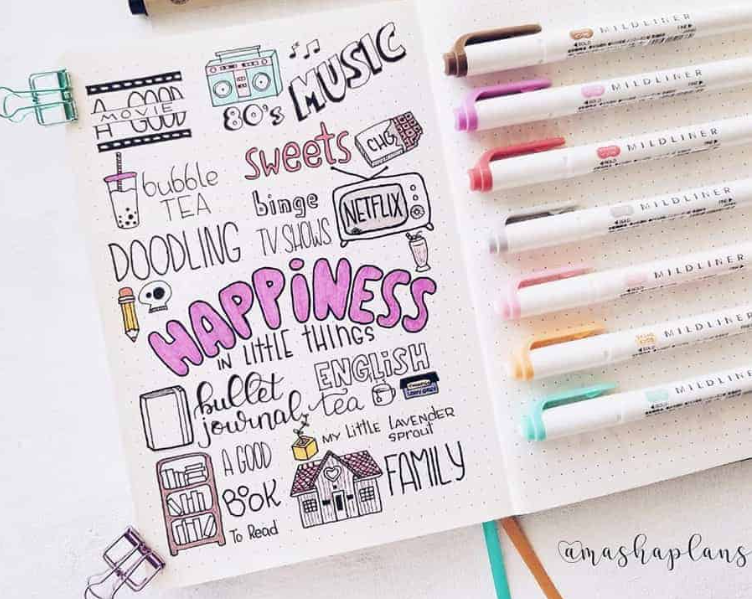 A GOOD
MOVIE
80's MUSIC
sweets
CHO
bubble
TEA
binge
TV SHOWS
NETFLIX
DOODLING
HAPPINESS
IN LITTLE THINGS
bullet
journal
ENGLISH
tea
MY LITTLE LAVENDER
sprout
A GOOD
BOOK
To Read
FAMILY
MILDLINER
MILDLINER
MILDLINER
MILDLINER
MILDLINER
MILDLINER
MILDLINER
@mashaplans